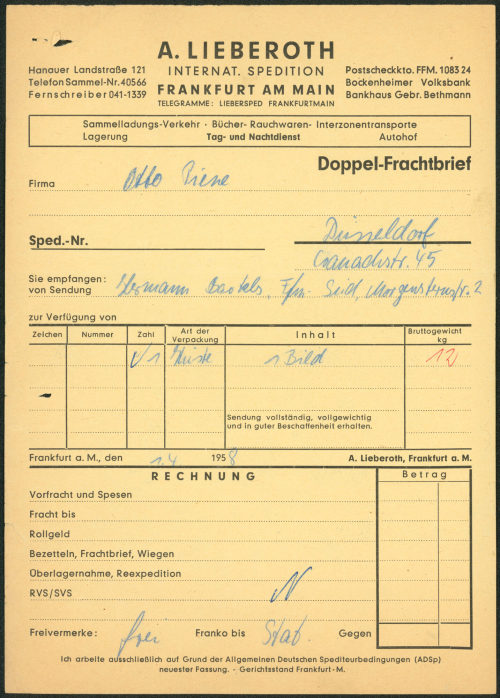 A. LIEBEROTH
INTERNAT. SPEDITION
FRANKFURT AM MAIN
TELEGRAMME: LIEBERSPED FRANKFURTMAIN
Hanauer Landstraße 121
Telefon Sammel-Nr. 40566
Fernschreiber 041-1339
Postscheckkto. FFM. 1083 24
Bockenheimer Volksbank
Bankhaus Gebr. Bethmann
Sammelladungs-Verkehr · Bücher- Rauchwaren- Interzonentransporte
Lagerung Tag- und Nachtdienst Autohof
Doppel-Frachtbrief
Firma Otto Piene
Düsseldorf
Sped.-Nr.
Cranachstr. 45
Sie empfangen:
von Sendung Hermann Bartels, Ffm- Süd, Morgensternstr. 2
zur Verfügung von
Zeichen Nummer Zahl Art der Verpackung Inhalt Bruttogewicht kg
1 Kiste 1 Bild 12
Sendung vollständig, vollgewichtig
und in guter Beschaffenheit erhalten.
Frankfurt a. M., den 1.4 1958 A. Lieberoth, Frankfurt a. M.
RECHNUNG Betrag
Vorfracht und Spesen
Fracht bis
Rollgeld
Bezetteln, Frachtbrief, Wiegen
Überlagernahme, Reexpedition
RVS/SVS
Freivermerke: frei Franko bis Stat. Gegen
Ich arbeite ausschließlich auf Grund der Allgemeinen Deutschen Spediteurbedingungen (ADSp)
neuester Fassung. - Gerichtsstand Frankfurt-M.